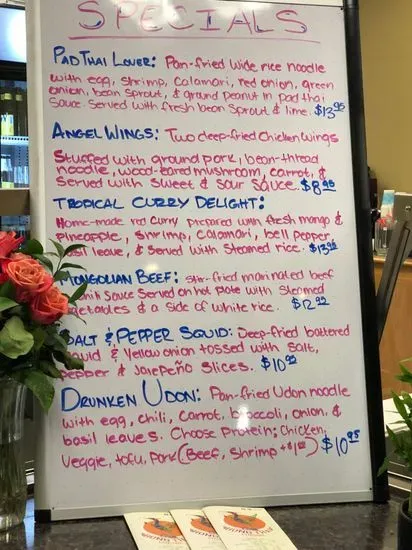 SPECIALS
PAD THAI LOVER: Pan-fried wide rice noodle
with egg, shrimp, calamari, red onion, green
onion, bean sprout, & ground peanut in pad thai
sauce. Served with fresh bean sprout & lime. $13.95
ANGEL WINGS: Two deep-fried chicken wings
stuffed with ground pork, bean-thread
noodle, wood-eared mushroom, carrot, &
served with sweet & sour sauce. $8.95
TROPICAL CURRY DELIGHT:
Home-made red curry prepared with fresh mango &
pineapple, shrimp, calamari, bell pepper,
basil leave, & served with steamed rice. $13.95
MONGOLIAN BEEF: stir-fried marinated beef
sauce served on hot plate with steamed
vegetables & a side of white rice. $12.95
SALT & PEPPER SQUID: Deep-fried battered
squid & yellow onion tossed with salt,
pepper & Jalepeño slices. $10.95
DRUNKEN UDON: Pan-fried Udon noodle
with egg, chili, carrot, broccoli, onion, &
basil leaves. Choose protein; chicken,
veggie, tofu, pork (Beef, shrimp +$1.00) $10.95